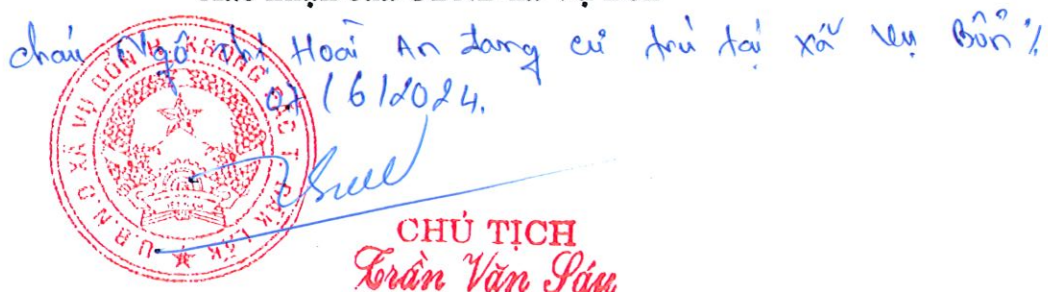 cháu Ngô thị Hoài An đang cư trú tại xã Vụ Bổn ./.
07/6/2024.
U.B.N.D XÃ VỤ BỔN H. KRÔNG PẮC T. ĐẮK LẮK
CHỦ TỊCH
Trần Văn Sáu